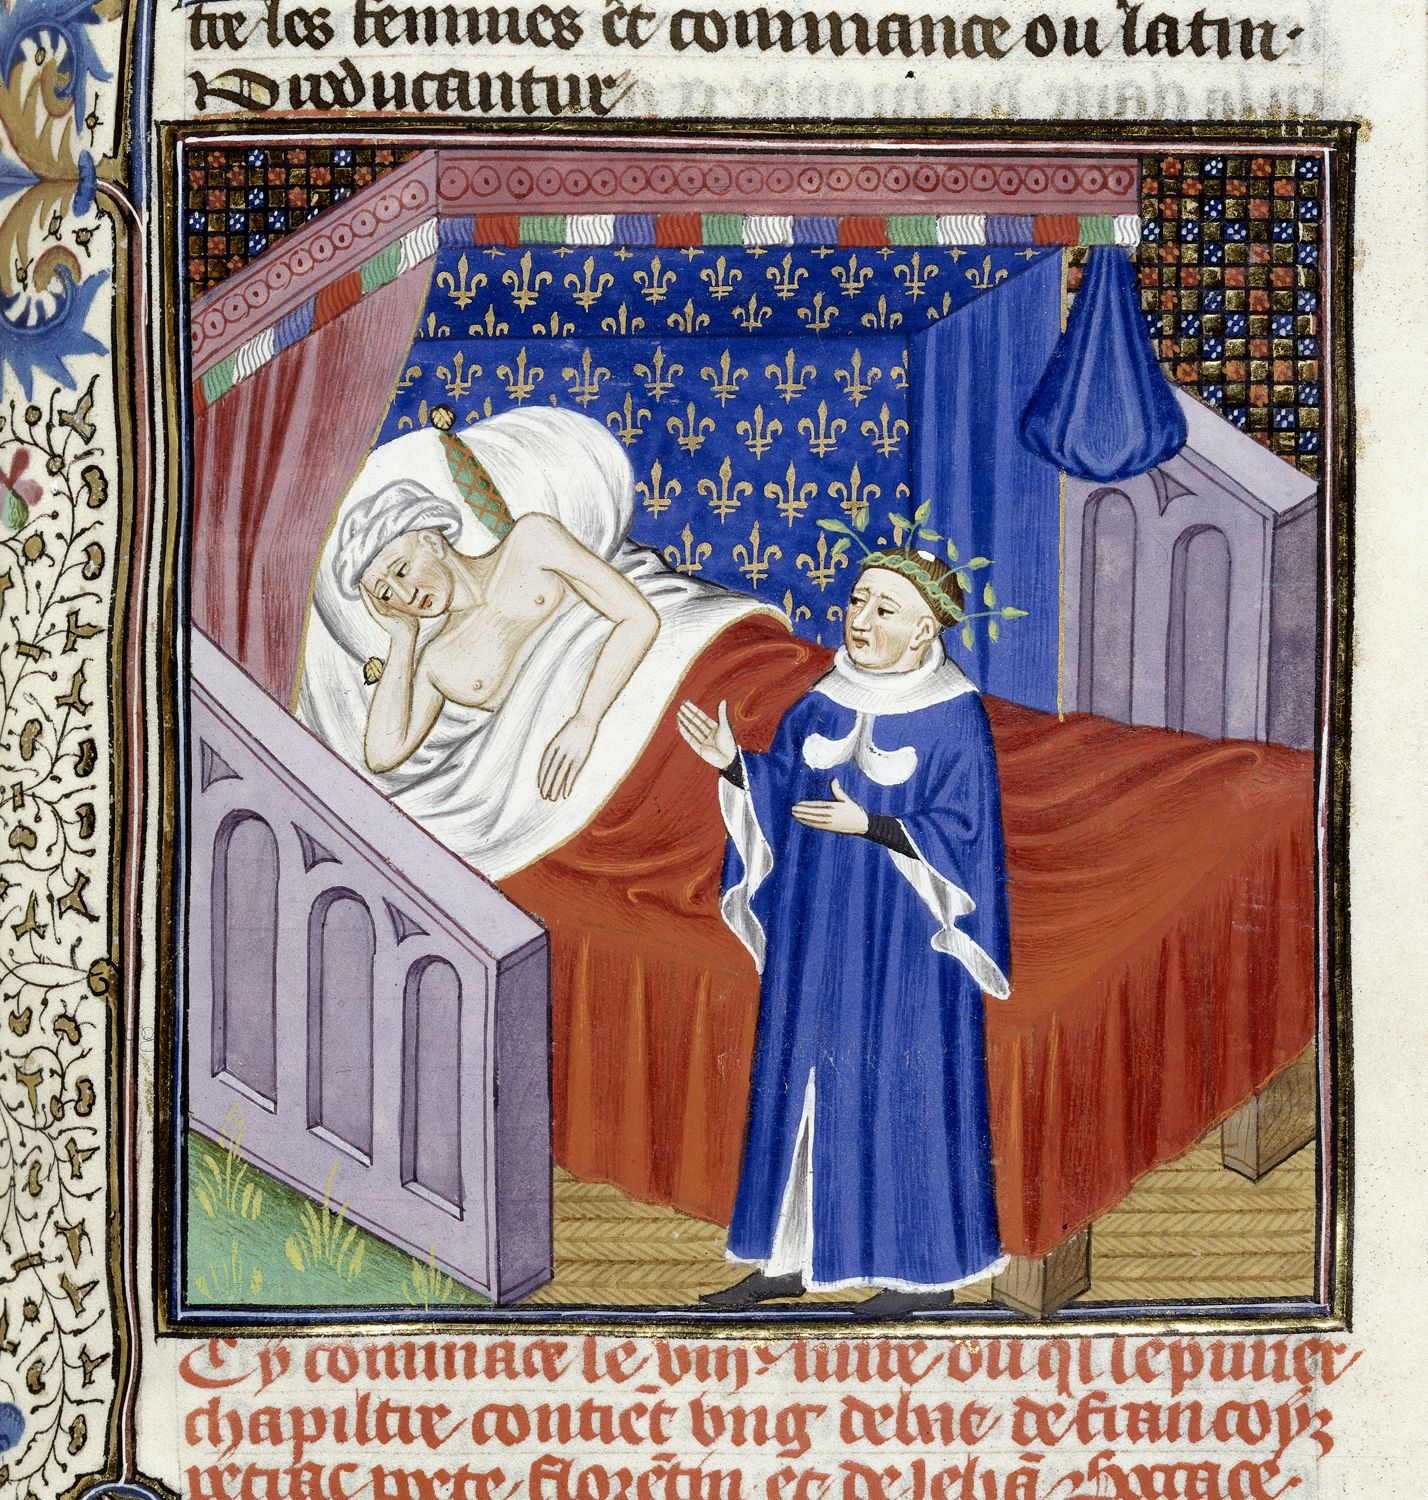 tre les femmes et commance ou latin.
Producantur
Cy commāce le viijᵉ livre du q̄l le p̄mier
chapiltre contiēt vng debat de francoys
petrac poete florētin et de Jehā Bocace.